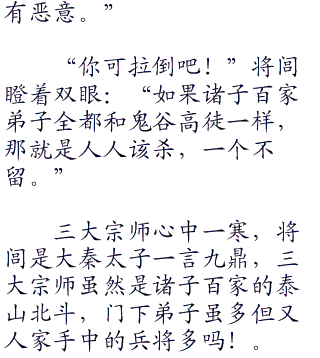 有恶意。”
“你可拉倒吧！”将闾
瞪着双眼：“如果诸子百家
弟子全都和鬼谷高徒一样，
那就是人人该杀，一个不
留。”
三大宗师心中一寒，将
闾是大秦太子一言九鼎，三
大宗师虽然是诸子百家的泰
山北斗，门下弟子虽多但又
人家手中的兵将多吗！。